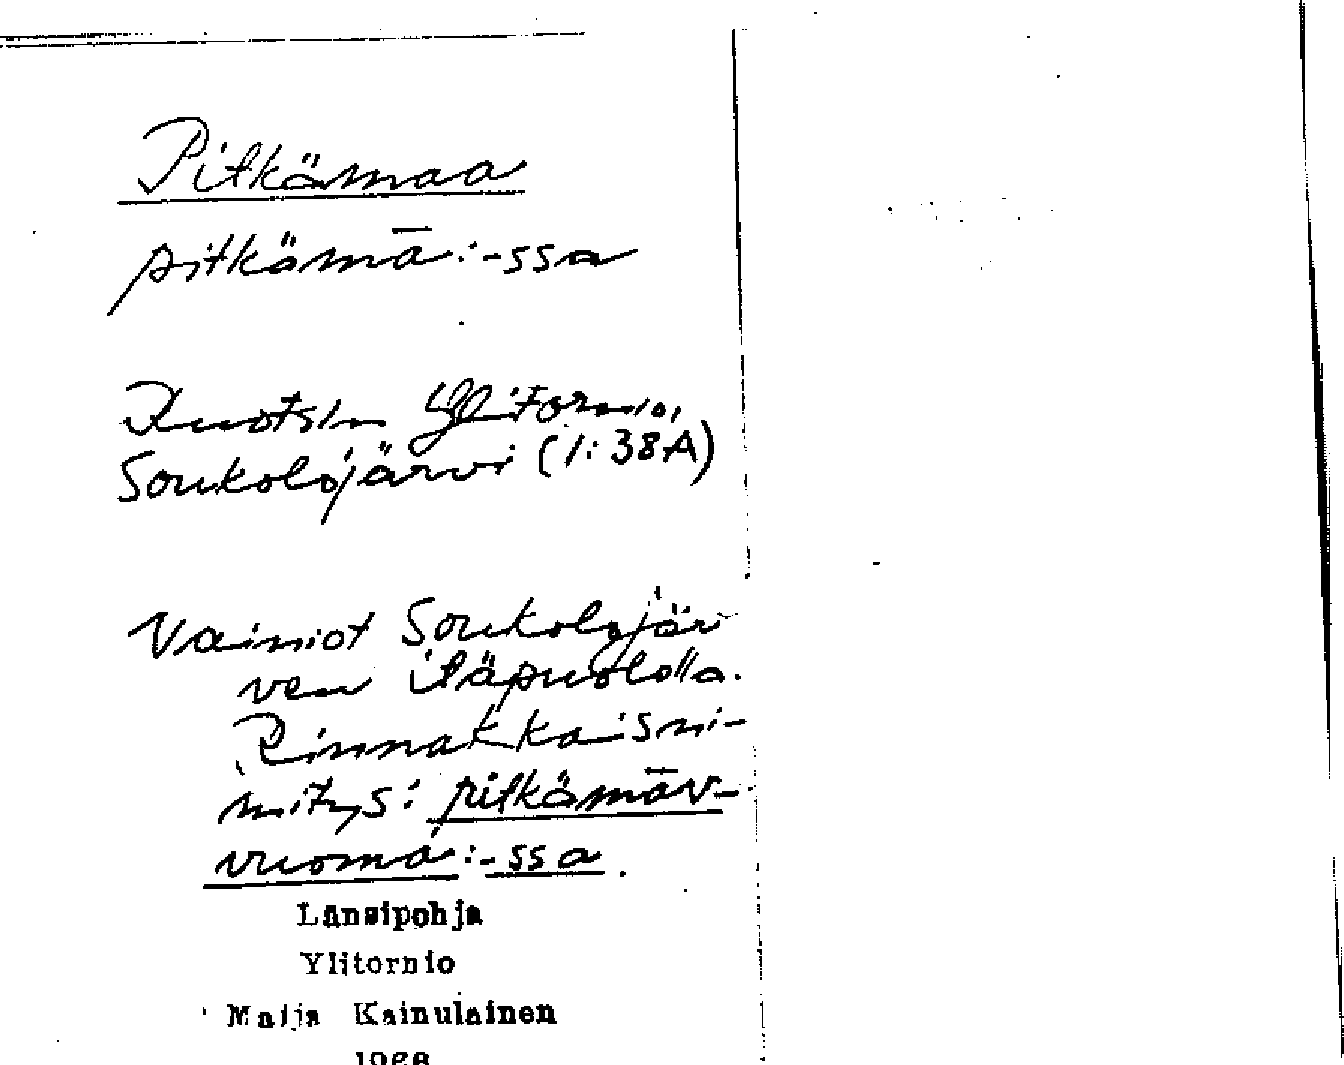 Pitkämaa
pitkämā:-ssa
Ruotsin Ylitornio,
Soukolojärvi (1:38A)
Vainiot Soukolojär
ven itäpuolella.
Rinnakkaisni-
mitys: pitkämāv-
vuoma:-ssa.
Länsipohja
Ylitornio
Maija Kainulainen